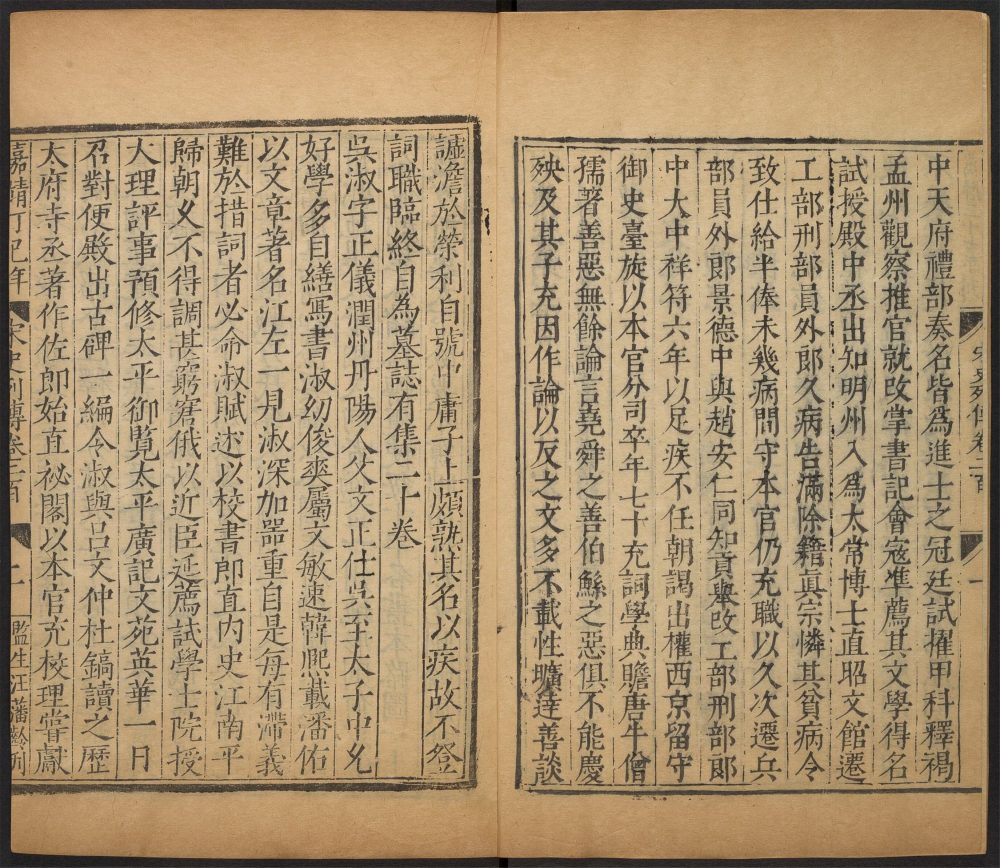 中天府禮部奏名皆爲進士之冠廷試擢甲科釋褐
孟州觀察推官就改掌書記會寇準薦其文學得名
試授殿中丞出知明州入爲太常博士直昭文館遷
工部刑部員外郎久病告滿除籍真宗憐其貧病令
致仕給半俸未幾病間守本官仍充職以久次遷兵
部員外郎景德中與趙安仁同知貢舉改工部刑部郎
中大中祥符六年以足疾不任朝謁出權西京留守
御史臺旋以本官分司卒年七十充詞學典贍唐牛僧
孺著善惡無餘論言堯舜之善伯鯀之惡俱不能慶
殃及其子充因作論以反之文多不載性曠達善談
謔澹於榮利自號中庸子上頗熟其名以疾故不登
詞職臨終自為墓誌有集二十卷
吳淑字正儀潤州丹陽人父文正仕吳至太子中允
好學多自繕寫書淑幼俊爽屬文敏速韓熙載潘佑
以文章著名江左一見淑深加器重自是每有滯義
難於措詞者必命淑賦述以校書郎直內史江南平
歸朝久不得調甚窮窘俄以近臣延薦試學士院授
大理評事預修太平御覽太平廣記文苑英華一日
召對便殿出古碑一編令淑與呂文仲杜鎬讀之歷
太府寺丞著作佐郎始直祕閣以本官充校理嘗獻
嘉靖丁巳年 宋史列傳卷二百 二 監生汪藩齡刊